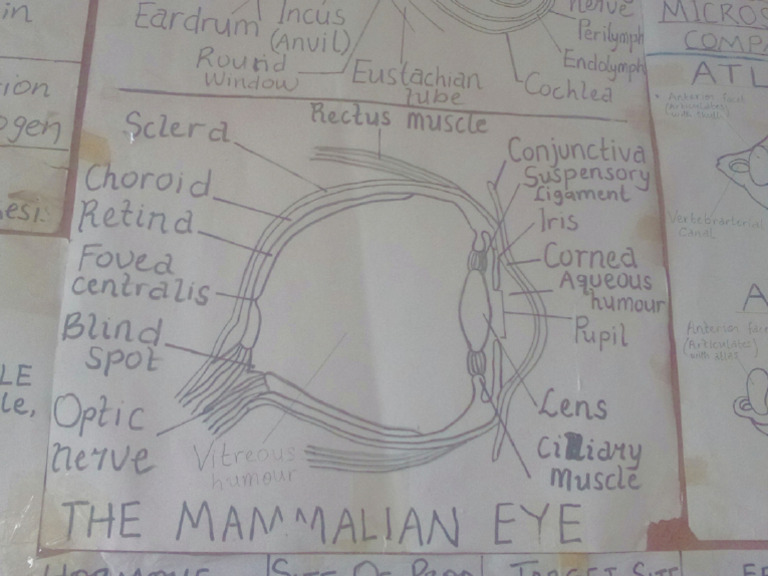 in
Eardrum
Incus
(Anvil)
Round
Window
Eustachian
tube
nerve
Perilymph
Endolymph
Cochlea
MICROS
COMPA
ATL
Anterior facet
(Articulates
with skull)
Vertebrarterial
Canal
A
(Articulates
with atlas)
ion
ogen
esi.
LE
le,
Sclera
Choroid
Retina
Fovea
centralis
Blind
spot
Optic
nerve
Rectus muscle
Conjunctiva
Suspensory
Ligament
Iris
Cornea
Aqueous
humour
Pupil
Lens
Cilliary
Muscle
Vitreous
humour
THE MAMMALIAN EYE
HORMONE
SITE OF PROD
TARGET SITE
EF